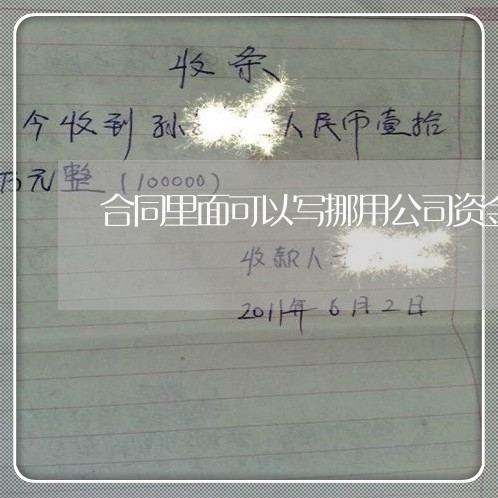 收条
今收到孙 人民币壹拾
万元整(100000)
合同里面可以写挪用公司资金
收款人
2011年6月2日